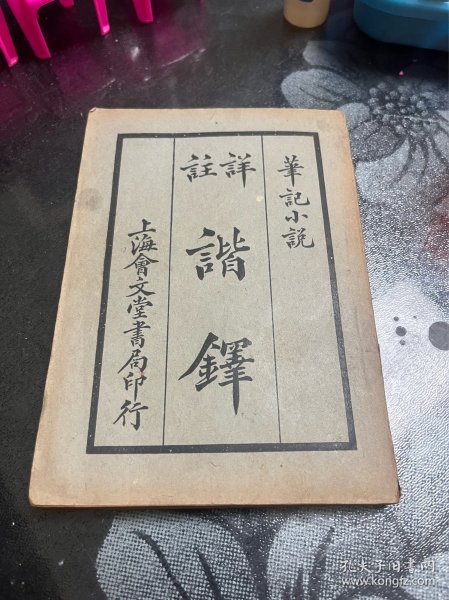 筆記小説
詳註
諧鐸
上海會文堂書局印行
孔夫子旧书网
www.kongfz.com